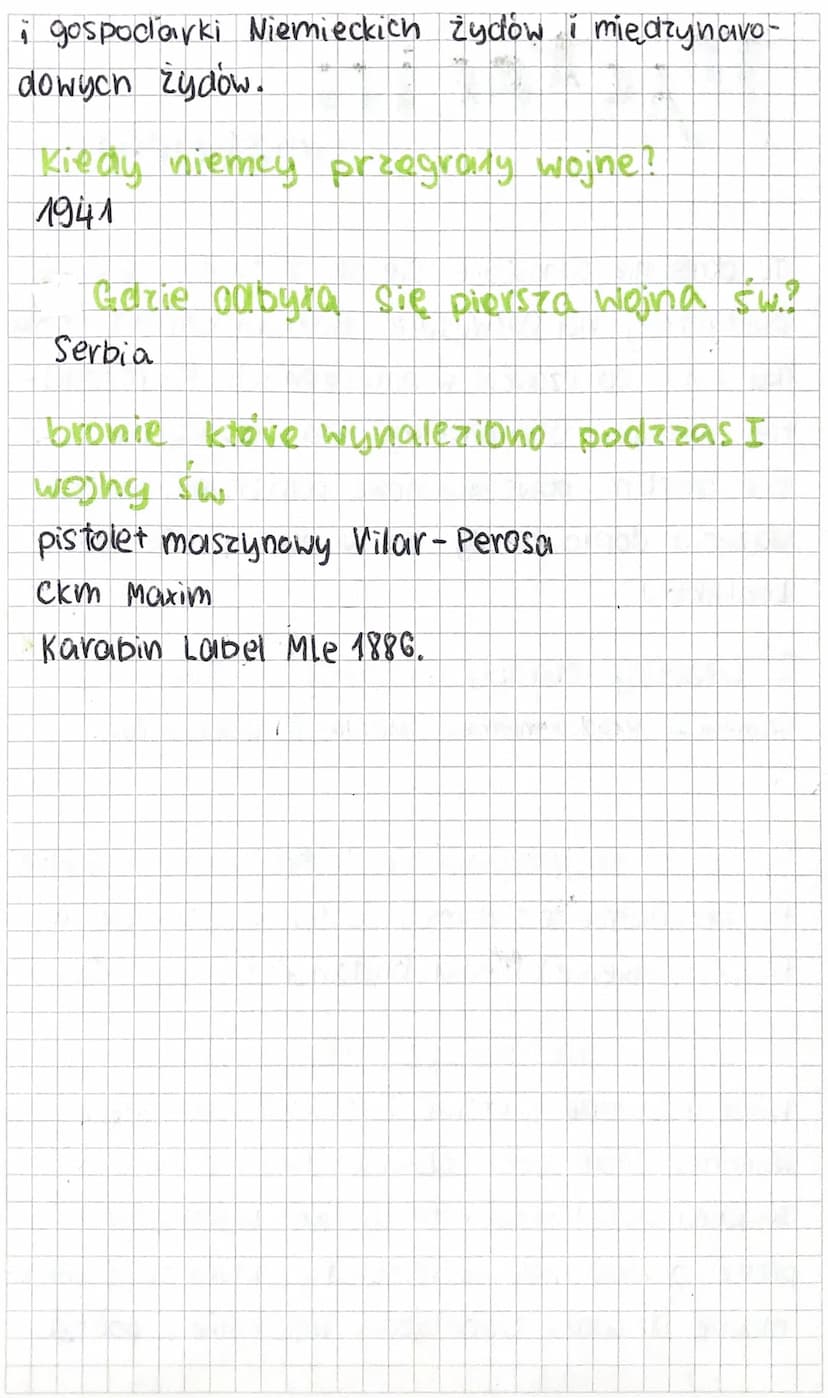 i gospodarki Niemieckich żydów i międzynaro-
dowych żydów.
Kiedy niemcy przegrały wojne?
1941
Gdzie odbyła się piersza wojna św.?
Serbia
bronie które wynaleziono podzzas I
wojny św
pistolet maszynowy Vilar-Perosa
Ckm Maxim
Karabin Label Mle 1886.